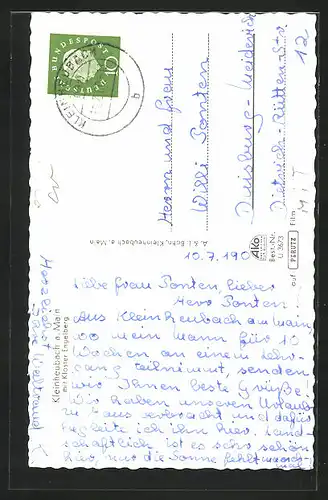 DEUTSCHE
BUNDESPOST
10
KLEINHEUBACH
a
Herrn und Frau
Willi Ponten
Duisburg-Meiderich
Dietrich-Rütten-Str
12
A. & J. Bohn, Kleinheubach a. Main
Ako
Best-Nr.
U 3623
Film
PERUTZ
Kleinheubach a. Main
mit Kloster Engelberg
10.7.190
Liebe Frau Ponten, lieber
Herr Ponten.
Aus Kleinheubach am Main,
wo mein Mann für 10
Wochen an einem Lehr-
gang teilnimmt, senden
wir Ihnen beste Grüße.
Wir haben unseren Urlaub
zu haus verbracht und dafür
begleite ich ihn hier. Land-
schaftlich ist es sehr schön
hier, nur die Sonne fehlt manch-
mal
Herzlichst
Ihre